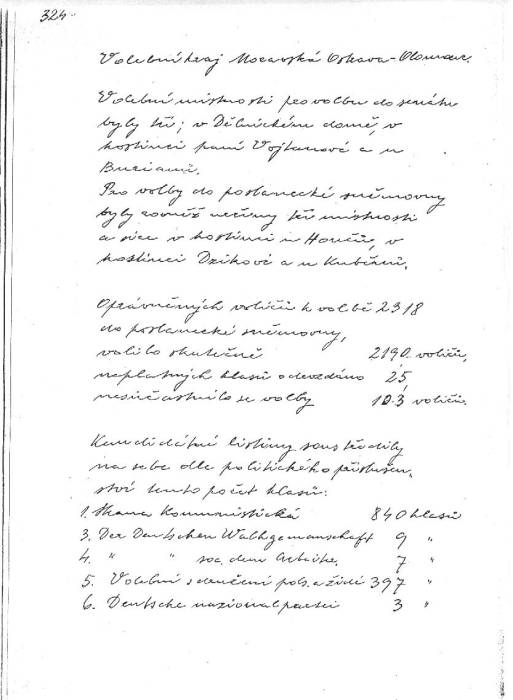 324.
Volební kraj Moravská Ostrava-Olomouc.
Volební místnosti pro volbu do senátu
byly tři; v Dělnickém domě, v
hostinci paní Vojtanové a u
Buriánů.
Pro volby do poslanecké sněmovny
byly rovněž určeny tři místnosti
a sice v hostinci u Hončů, v
hostinci Dzikové a u Kuběnů.
Oprávněných voličů k volbě 2318
do poslanecké sněmovny,
volilo skutečně 2190. voličů,
neplatných hlasů odevzdáno 25,
nesúčastnilo se volby 103 voličů.
Kandidátní listiny soustředily
na sebe dle politického příslušen.
ství tento počet hlasů:
1. Strana Kommunistická 840 hlasů
3. Der Deutschen Wahlgemanschaft 9 "
4. " " soc. dem Arbeite. 7 "
5. Volební sdružení pols. a židů 397 "
6. Deutsche nazionalpartei 3 "